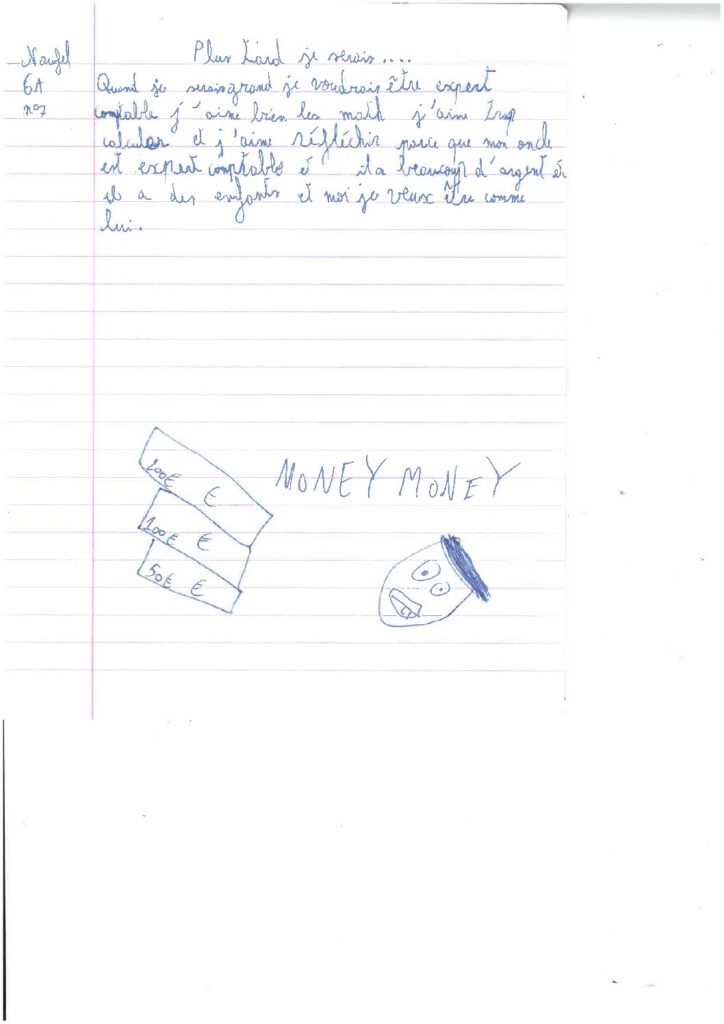 Naufel
6A
n°7
Plus tard je serais....
Quand je serais grand je voudrais être expert
comptable j'aime bien les math j'aime trop
calculer et j'aime réfléchir parce que mon oncle
est expert comptable et il a beaucoup d'argent et
il a des enfants et moi je veux être comme
lui.
MONEY MONEY
200€ €
100€ €
50€ €